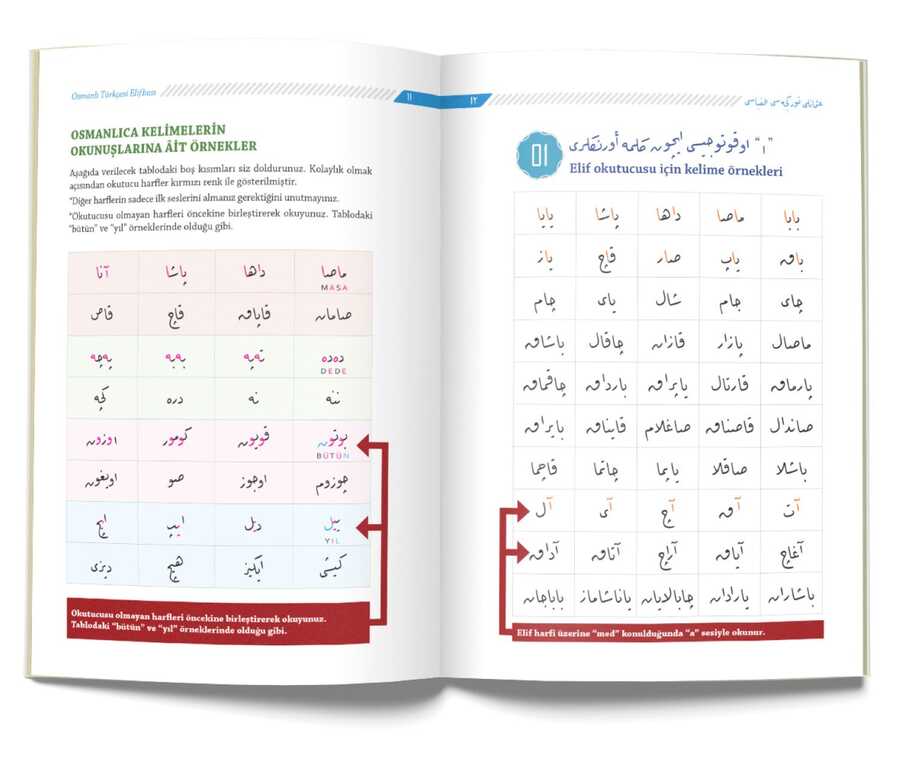 Osmanlı Türkçesi Elifbası
١١
OSMANLICA KELİMELERİN
OKUNUŞLARINA ÂİT ÖRNEKLER
Aşağıda verilecek tablodaki boş kısımları siz doldurunuz. Kolaylık olmak
açısından okutucu harfler kırmızı renk ile gösterilmiştir.
*Diğer harflerin sadece ilk seslerini almanız gerektiğini unutmayınız.
*Okutucusu olmayan harfleri öncekine birleştirerek okuyunuz. Tablodaki
"bütün" ve "yıl" örneklerinde olduğu gibi.
ماصا داها پاشا آنا
MASA
صامان قاپاق قاچ قاص
ده‌ده ته‌په به‌به په‌چه
DEDE
ننه نه دره كچه
بوتون قويون كومور اوزون
BÜTÜN
چوزوم اوجوز صو اويغون
ييل ديل ايپ ايچ
YIL
كيشی ايكيز هيچ ديزی
Okutucusu olmayan harfleri öncekine birleştirerek okuyunuz.
Tablodaki "bütün" ve "yıl" örneklerinde olduğu gibi.
١٢
عثمانلی توركچه سی الفباسی
٥١
"ا" اوقوتوجيسی ايچون كلمه اورنكلری
Elif okutucusu için kelime örnekleri
بابا ماصا داها پاشا يايا
باق ياپ صار قاچ ياز
چای جام شال يای چام
ماصال پازار قازان چاقال باشاق
پارماق قارتال ياپراق بارداق چاقماق
صاندال قاصناق صاغلام قايناق بايراق
باشلا صاقلا ياپما چاتما قاچما
آت آق آچ آی آل
آغاچ آياق آراچ آتاق آداق
باشاران يارادان چابالايان ياناشاماز باباجان
Elif harfi üzerine "med" konulduğunda "a" sesiyle okunur.